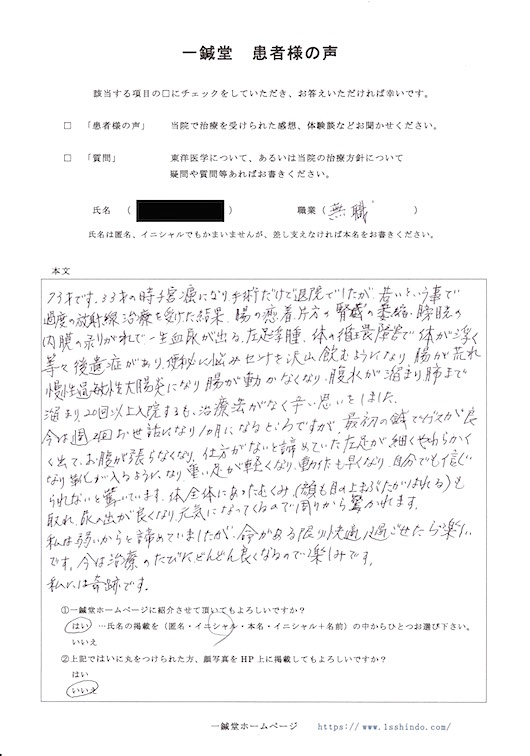 一鍼堂　患者様の声
該当する項目の□にチェックをしていただき、お答えいただければ幸いです。
□　「患者様の声」　当院で治療を受けられた感想、体験談などお聞かせください。
□　「質問」　東洋医学について、あるいは当院の治療方針について
疑問や質問等あればお書きください。
氏名　（　　　）　職業（無職　）
氏名は匿名、イニシャルでもかまいませんが、差し支えなければ本名をお書きください。
本文
73才です。33才の時子宮癌になり手術だけで退院でしたが、若いという事で
過度の放射線治療を受けた結果、腸の癒着、片方の腎臓の萎縮、膀胱の
内膜の剥がれで一生血尿が出る、左足浮腫、体の循環障害で体が浮く
等々後遺症があり、便秘に悩みセンナを沢山飲むようになり腸が荒れ
慢性過敏性大腸炎になり腸が動かなくなり、腹水が溜まり肺まで
溜まり、20回以上入院するも、治療法がなく辛い思いをしました。
今は週2回お世話になり1カ月になるところですが、最初の鍼でガスが良
く出て、お腹が張らなくなり、仕方がないと諦めていた左足が細くやわらかく
なり靴が入るようになり重い足が軽くなり、動作も早くなり、自分でも信じ
られないと驚いています。体全体にあったむくみ(顔も目の上まぶたがはれる)も
取れ、尿の出が良くなり元気になってくるので周りから驚かれます。
私は弱いからと諦めていましたが、命がある限り快適に過ごせたら楽しい
です。今は治療のたびに、どんどん良くなるので楽しみです。
私には奇跡です。
①一鍼堂ホームページに紹介させて頂いてもよろしいですか？
はい　…氏名の掲載を（匿名・イニシャル・本名・イニシャル＋名前）の中からひとつお選び下さい。
いいえ
②上記ではいに丸をつけられた方、顔写真をHP上に掲載してもよろしいですか？
はい
いいえ
一鍼堂ホームページ　https://www.1sshindo.com/